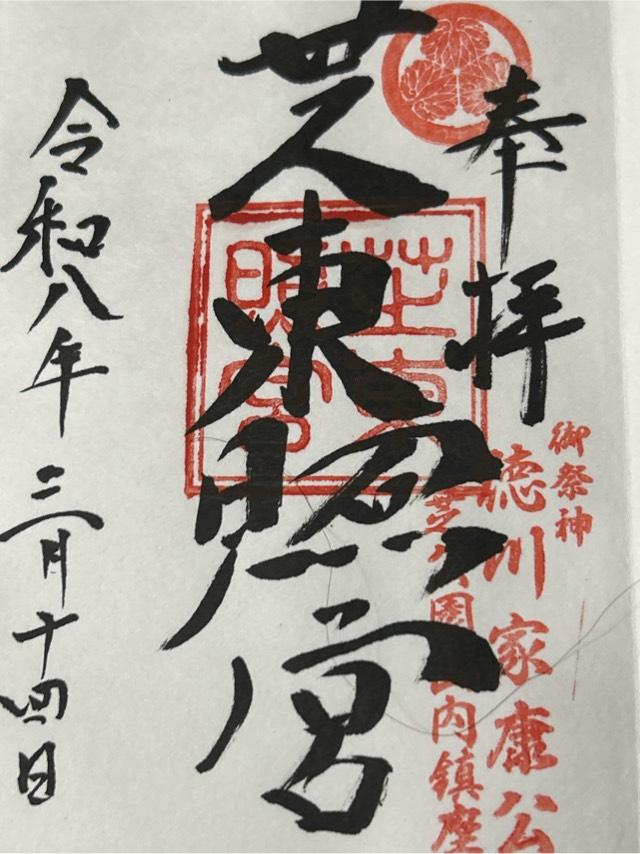 奉拝
御祭神
徳川家康公
芝公園
内鎮座
芝東照宮
芝東照宮
令和八年三月十四日